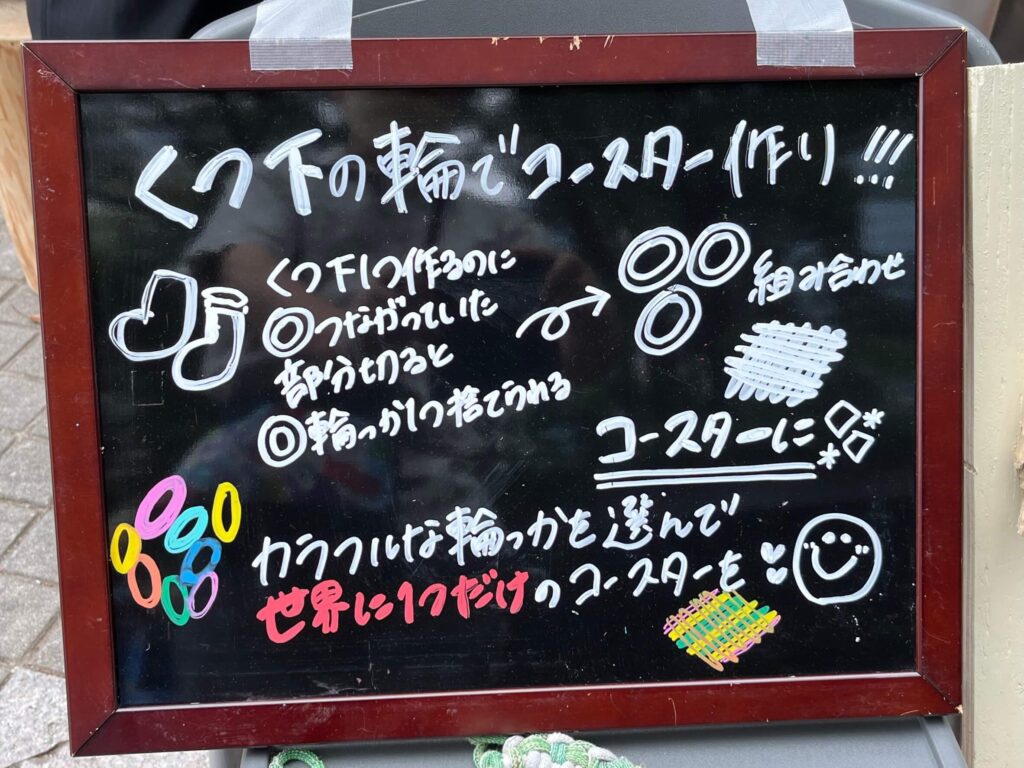 くつ下の輪でコースター作り!!!
くつ下1つ作るのに
◎つながっていた
部分切ると
◎輪っか1つ捨てられる
組み合わせ
コースターに
カラフルな輪っかを選んで
世界に1つだけのコースターを